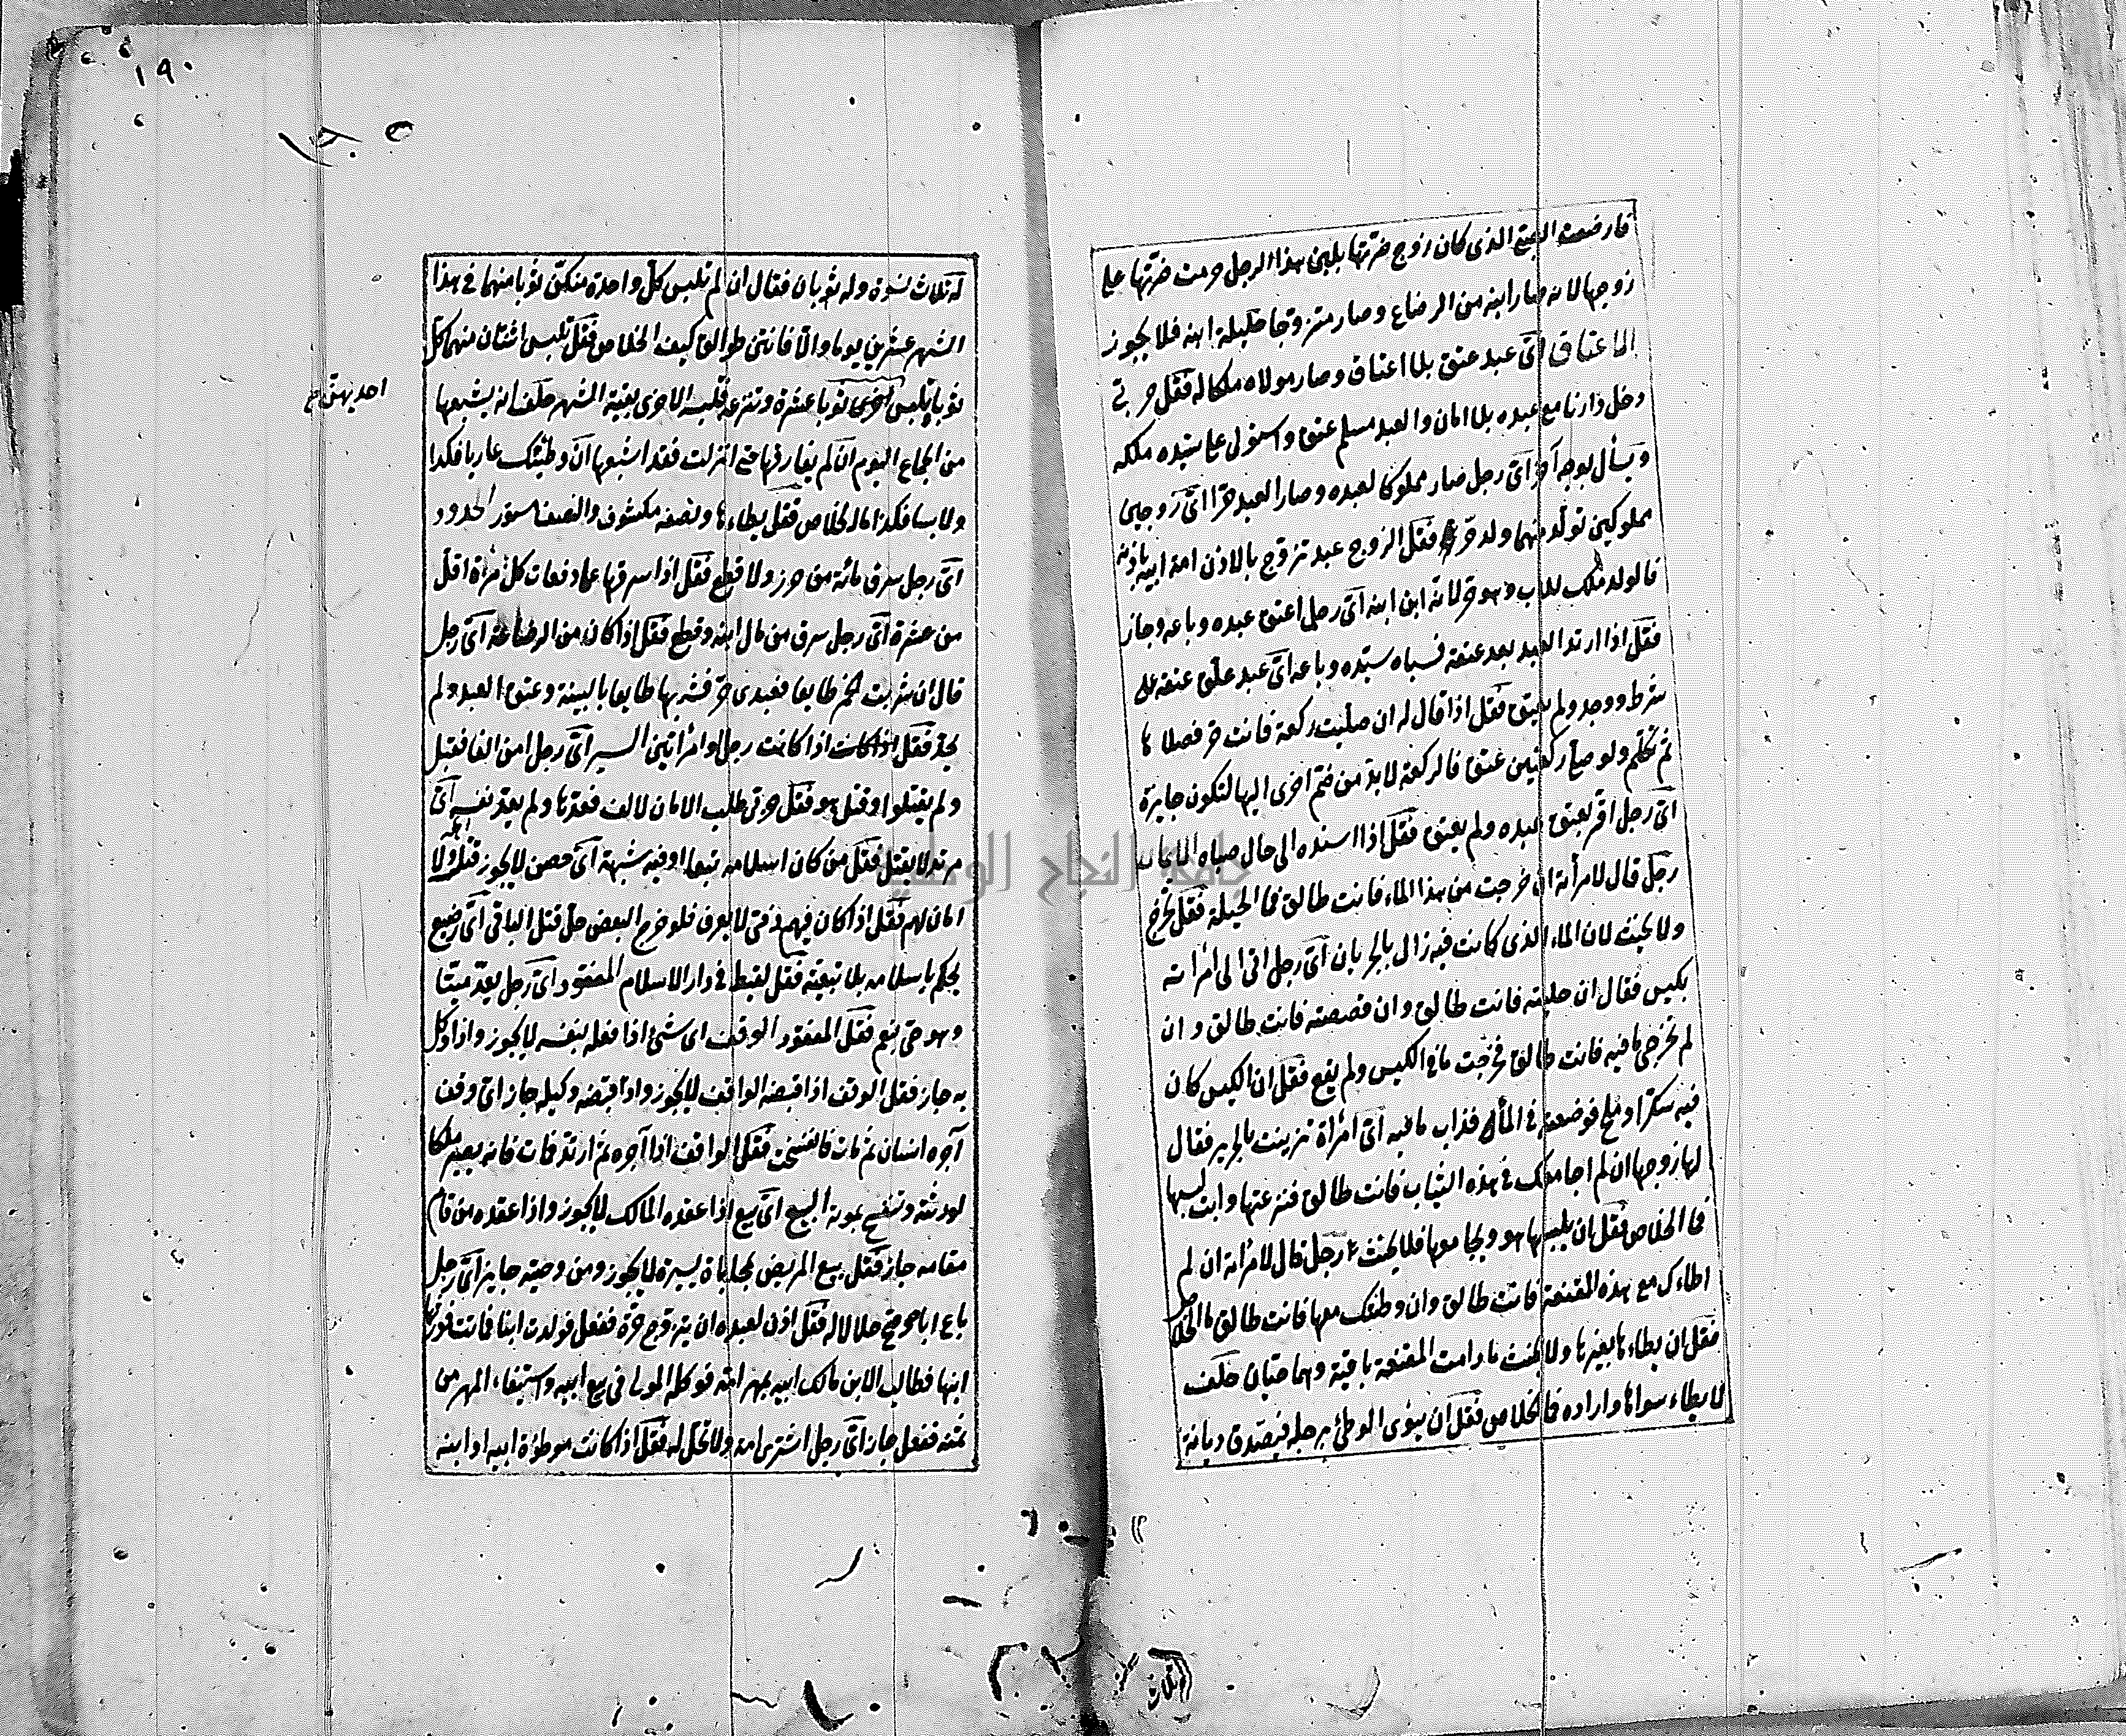 فارضعت الصبي الذي كان زوج ضرتها بلبن هذا الرجل حرمت ضرتها علي
زوجها لانه صار ابنه من الرضاع وصار متزوجا حليلة ابنه فلا يجوز
العتاق اي عبد عتق بلا اعتاق وصار مولاه ملكا له فقل حربي
دخل دارنا مع عبده بلا امان والعبد مسلم عتق واستولي علي سيده ملكه
ويسأل بوجه آخر اي رجل صار مملوكا لعبده وصار العبد حرا اي زوجين
مملوكين تولد منهما ولد حر فقل الزوج عبد تزوج بالاذن امة ابيه باذنه
فالولد ملك للاب وهو حر لانه ابن ابنه اي رجل اعتق عبده وباعه وجاز
فقل اذا ارتد العبد بعد عتقه فسباه سيده وباعه اي عبد علق عتقه على
شرط ووجد ولم يعتق فقل اذا قال له ان صليت ركعة فانت حر فصلاها
ثم تكلم ولو صلي ركعتين عتق فالركعة لا بد من ضم اخرى اليها لتكون جايزة
اي رجل اقر بعتق عبده ولم يعتق فقل اذا اسنده الى حال صباه الايمان
رجل قال لامرأته ان خرجت من هذا الماء فانت طالق فما الحيلة فقل تخرج
ولا يحنث لان الماء الذي كانت فيه زال بالجريان اي رجل اتى الى امرأته
بكيس فقال ان حليته فانت طالق وان قصصته فانت طالق وان
لم تخرجي ما فيه فانت طالق فخرجت ما في الكيس ولم يقع فقل ان الكيس كان
فيه سكرا وملح فوضعته في الماء فذاب ما فيه اي امرأة تزينت بالحرير فقال
لها زوجها ان لم اجامعك في هذه الثياب فانت طالق فنزعتها وابت لبسها
فما الخلاص فقل ان يلبسها هو ويجامعها فلا يحنث رجل قال لامرأته ان لم
اطاءك مع هذه المقنعة فانت طالق وان وطئتك معها فانت طالق ما الخلاص
فقل ان يطاءها بغيرها ولا يحنث ما دامت المقنعة باقية وهما حيان حلف
لا يطاء سواها واراده فالخلاص فقل ان ينوى الوطئ برجله فيصدق ديانة
ثلاث
١٩٠
له ثلاث نسوة وله ثوبان فقال ان لم تلبس كل واحدة منكن ثوبا منهما في هذا
الشهر عشرين يوما والا فانتن طوالق كيف الخلاص فقل تلبس اثنتان منهن كل
ثوبا وتلبس اخرى ثوبا عشرة وتنزعه فتلبسه الاخرى بقية الشهر حلف انه يشبعها
من الجماع اليوم ان لم يفارقها حتى انزلت فقد اشبعها ان وطئتك عاريا فكذا
ولابسا فكذا ما الخلاص فقل يطاءها ونصفه مكشوف والنصف مستور الحدود
اي رجل سرق مائة من حرز ولا قطع فقل اذا سرقها على دفعات كل مرة اقل
من عشرة اي رجل سرق من مال ابنه وقطع فقل اذا كان من الرضاعة اي رجل
قال ان شربت الخمر طايعا فعبدي حر فشربها طايعا بالبينة وعتق العبد ولم
يحد فقل اذا كانت رجلا وامرأتين السير اي رجل امن الفا فقتل
ولم يقتلوا وقتل هو فقل حربي طلب الامان لالف فعدها ولم يعد نفسه اي
مرتد لا يقتل فقل من كان اسلامه تبعا او فيه شبهة اي حصن لا يجوز قتل اهله ولا
امان لهم فقل اذا كان فيهم ذمي لا يعرف فلو خرج البعض حل قتل الباقي اي رضيع
يحكم باسلامه بلا تبعية فقل لقيط في دار الاسلام المفقود اي رجل يعد ميتا
وهو حي ينعم فقل المفقود الوقف اي شئ اذا فعله بنفسه لا يجوز واذا وكل
به جاز فقل الوقف اذا قبضه الواقف لا يجوز واذا قبضه وكيله جاز اي وقف
آجره انسان ثم مات فانفسخت فقل الواقف اذا آجره ثم ارتد فمات فانه يصير ملكا
لورثته وتنفسخ بموته البيع اي بيع اذا عقده المالك لا يجوز واذا عقده من قام
مقامه جاز فقل بيع المريض بمحاباة يسيرة لا يجوز ومن وصيه جايز اي رجل
باع اباه وصح حلالا له فقل اذن لعبده ان يتزوج حرة ففعل فولدت ابنا فماتت فورثها
ابنها فطالب الابن مالك ابيه بمهر امه فوكله المولى في بيع ابيه واستيفاء المهر من
ثمنه ففعل جاز اي رجل اشترى امة ولا تحل له فقل اذا كانت موطؤة ابيه او ابنه
جامعة النجاح الوطنية